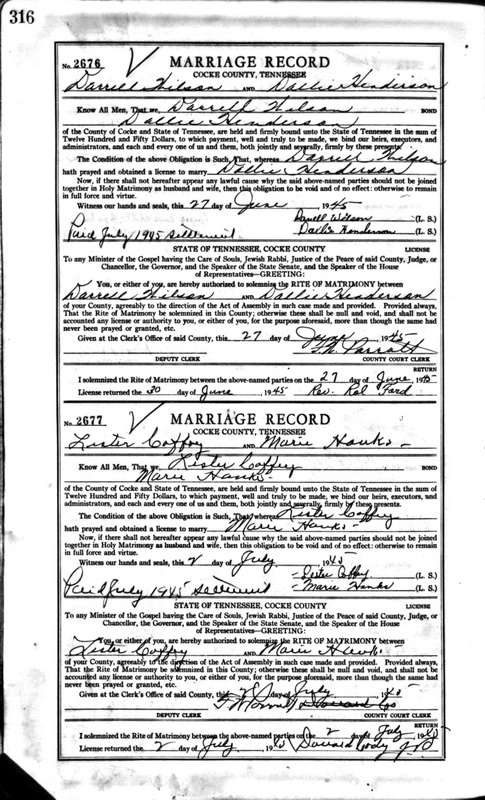 316
No. 2676 MARRIAGE RECORD
COCKE COUNTY, TENNESSEE
Darrell Wilson AND Dallie Henderson
Know All Men, That we, Darrell Wilson BOND
Dallie Henderson
of the County of Cocke and State of Tennessee, are held and firmly bound unto the State of Tennessee in the sum of
Twelve Hundred and Fifty Dollars, to which payment, well and truly to be made, we bind our heirs, executors, and
administrators, and each and every one of us and them, both jointly and severally, firmly by these presents.
The Condition of the above Obligation is Such, That, whereas Darrell Wilson
hath prayed and obtained a license to marry Dallie Henderson
Now, if there shall not hereafter appear any lawful cause why the said above-named parties should not be joined
together in Holy Matrimony as husband and wife, then this obligation to be void and of no effect: otherwise to remain
in full force and virtue.
Witness our hands and seals, this 27 day of June, 1945
Darrell Wilson (L. S.)
Paid July 1945 settlement Dallie Henderson (L. S.)
STATE OF TENNESSEE, COCKE COUNTY LICENSE
To any Minister of the Gospel having the Care of Souls, Jewish Rabbi, Justice of the Peace of said County, Judge, or
Chancellor, the Governor, and the Speaker of the State Senate, and the Speaker of the House
of Representatives—GREETING:
You, or either of you, are hereby authorized to solemnize the RITE OF MATRIMONY between
Darrell Wilson AND Dallie Henderson
of your County, agreeably to the direction of the Act of Assembly in such case made and provided. Provided always,
That the Rite of Matrimony be solemnized in this County; otherwise these shall be null and void, and shall not be
accounted any license or authority to you, or either of you, for the purpose aforesaid, more than though the same had
never been prayed or granted, etc.
Given at the Clerk's Office of said County, this 27 day of June 1945
Parrott
DEPUTY CLERK COUNTY COURT CLERK
RETURN
I solemnized the Rite of Matrimony between the above-named parties on the 27 day of June 1945
License returned the 30 day of June, 1945 Rev. Ford
No. 2677 MARRIAGE RECORD
COCKE COUNTY, TENNESSEE
Lester Coffey AND Marie Hawks
Know All Men, That we, Lester Coffey BOND
Marie Hawks
of the County of Cocke and State of Tennessee, are held and firmly bound unto the State of Tennessee in the sum of
Twelve Hundred and Fifty Dollars, to which payment, well and truly to be made, we bind our heirs, executors, and
administrators, and each and every one of us and them, both jointly and severally, firmly by these presents.
The Condition of the above Obligation is Such, That, whereas Lester Coffey
hath prayed and obtained a license to marry Marie Hawks
Now, if there shall not hereafter appear any lawful cause why the said above-named parties should not be joined
together in Holy Matrimony as husband and wife, then this obligation to be void and of no effect: otherwise to remain
in full force and virtue.
Witness our hands and seals, this 2 day of July, 1945
Lester Coffey (L. S.)
Paid July 1945 settlement Marie Hawks (L. S.)
STATE OF TENNESSEE, COCKE COUNTY LICENSE
To any Minister of the Gospel having the Care of Souls, Jewish Rabbi, Justice of the Peace of said County, Judge, or
Chancellor, the Governor, and the Speaker of the State Senate, and the Speaker of the House
of Representatives—GREETING:
You, or either of you, are hereby authorized to solemnize the RITE OF MATRIMONY between
Lester Coffey AND Marie Hawks
of your County, agreeably to the direction of the Act of Assembly in such case made and provided. Provided always,
That the Rite of Matrimony be solemnized in this County; otherwise these shall be null and void, and shall not be
accounted any license or authority to you, or either of you, for the purpose aforesaid, more than though the same had
never been prayed or granted, etc.
Given at the Clerk's Office of said County, this 2 day of July 1945
DEPUTY CLERK COUNTY COURT CLERK
RETURN
I solemnized the Rite of Matrimony between the above-named parties on the 2 day of July 1945
License returned the 2 day of July, 1945